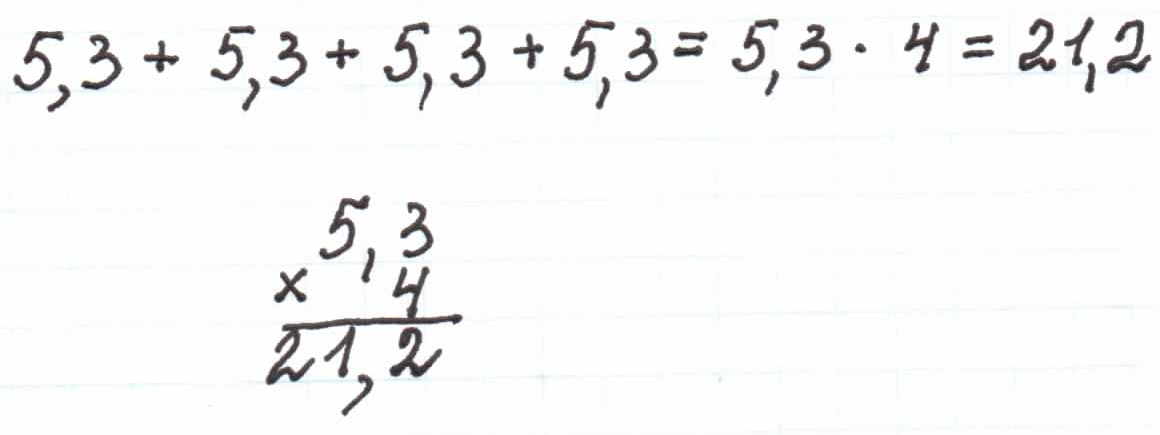 5,3 + 5,3 + 5,3 + 5,3 = 5,3 · 4 = 21,2
5,3
× 4
21,2